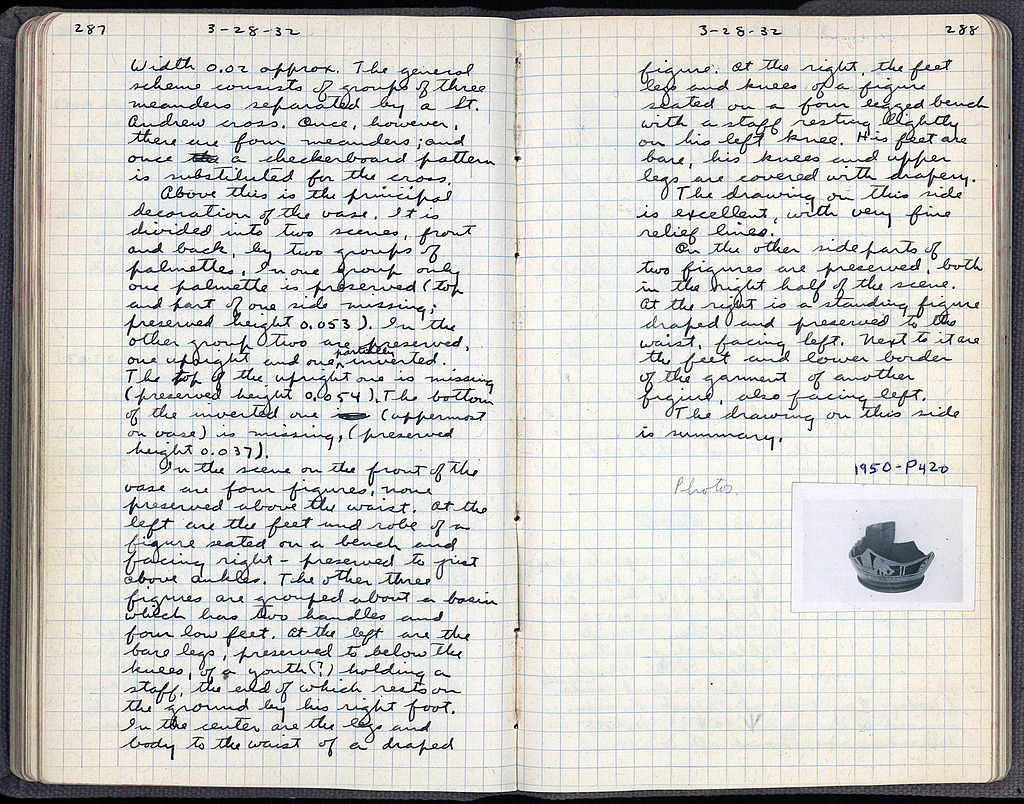 287
3-28-32
Width 0.02 approx. The general
scheme consists of groups of three
meanders separated by a St.
Andrew cross. Once, however,
there are four meanders; and
once the a checkerboard pattern
is substituted for the cross.
Above this is the principal
decoration of the vase. It is
divided into two scenes, front
and back, by two groups of
palmettes. In one group only
one palmette is preserved (top
and part of one side missing;
preserved height 0.053). In the
other group two are preserved,
one upright and one partially inverted.
The top of the upright one is missing
(preserved height 0.054). The bottom
of the inverted one is (uppermost
on vase) is missing, (preserved
height 0.037).
In the scene on the front of the
vase are four figures, none
preserved above the waist. At the
left are the feet and robe of a
figure seated on a bench and
facing right - preserved to just
above ankles. The other three
figures are grouped about a basin
which has two handles and
four low feet. At the left are the
bare legs, preserved to below the
knees, of a youth (?) holding a
staff, the end of which rests on
the ground by his right foot.
In the center are the legs and
body to the waist of a draped
3-28-32
288
figure. At the right, the feet
legs and knees of a figure
seated on a four legged bench
with a staff resting lightly
on his left knee. His feet are
bare, his knees and upper
legs are covered with drapery.
The drawing on this side
is excellent, with very fine
relief lines.
On the other side parts of
two figures are preserved, both
in the right half of the scene.
At the right is a standing figure
draped and preserved to the
waist, facing left. Next to it are
the feet and lower border
of the garment of another
figure, also facing left.
The drawing on this side
is summary.
1950-P420
Photos.